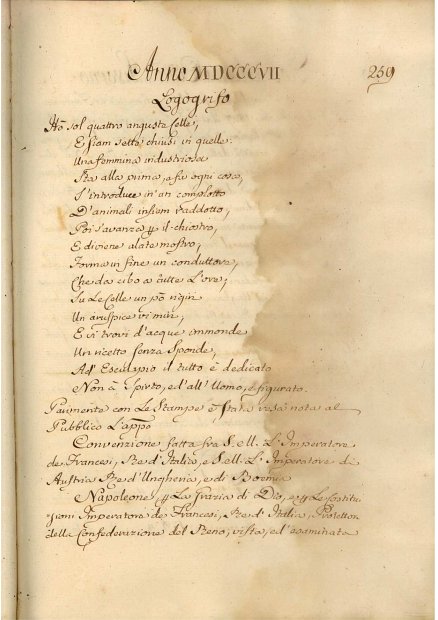 Anno MDCCCVII 259
Logogrifo
Hò sol quattro anguste Celle,
E siam sette chiusi in quelle:
Una femmina industriosa
Sta alla prima, a fu ogni cosa,
S'introduce in un complotto
D'animali insiem raddotto,
Poi s'avanza il chiostro,
E diviene alato mostro,
Forma in fine un conduttore,
Che da cibo a tutte l'ore;
Su le Celle un pò
Un aruspice vi miri,
E si trovi d'acque immonde
Un ricetto senza Sponde,
Ad' Esculapio il tutto è dedicato
Non è Spirto, ed' all' Uomo, è figurato.
Parimente con Le Stampe è stata resa nota al
Pubblico L'appo
Convenzione fatta fra S. ell. L' Imperatore
de Francesi, Re d' Italia, e S. ell. L' Imperatore di
Austria Re d' Ungheria, e di Boemia
Napoleone, La Grazia di Dio, e Le Costitu
zioni Imperatore de Francesi, Re d' Italia, Protettor
della Confederazione del Reno, vista, ed' esaminata